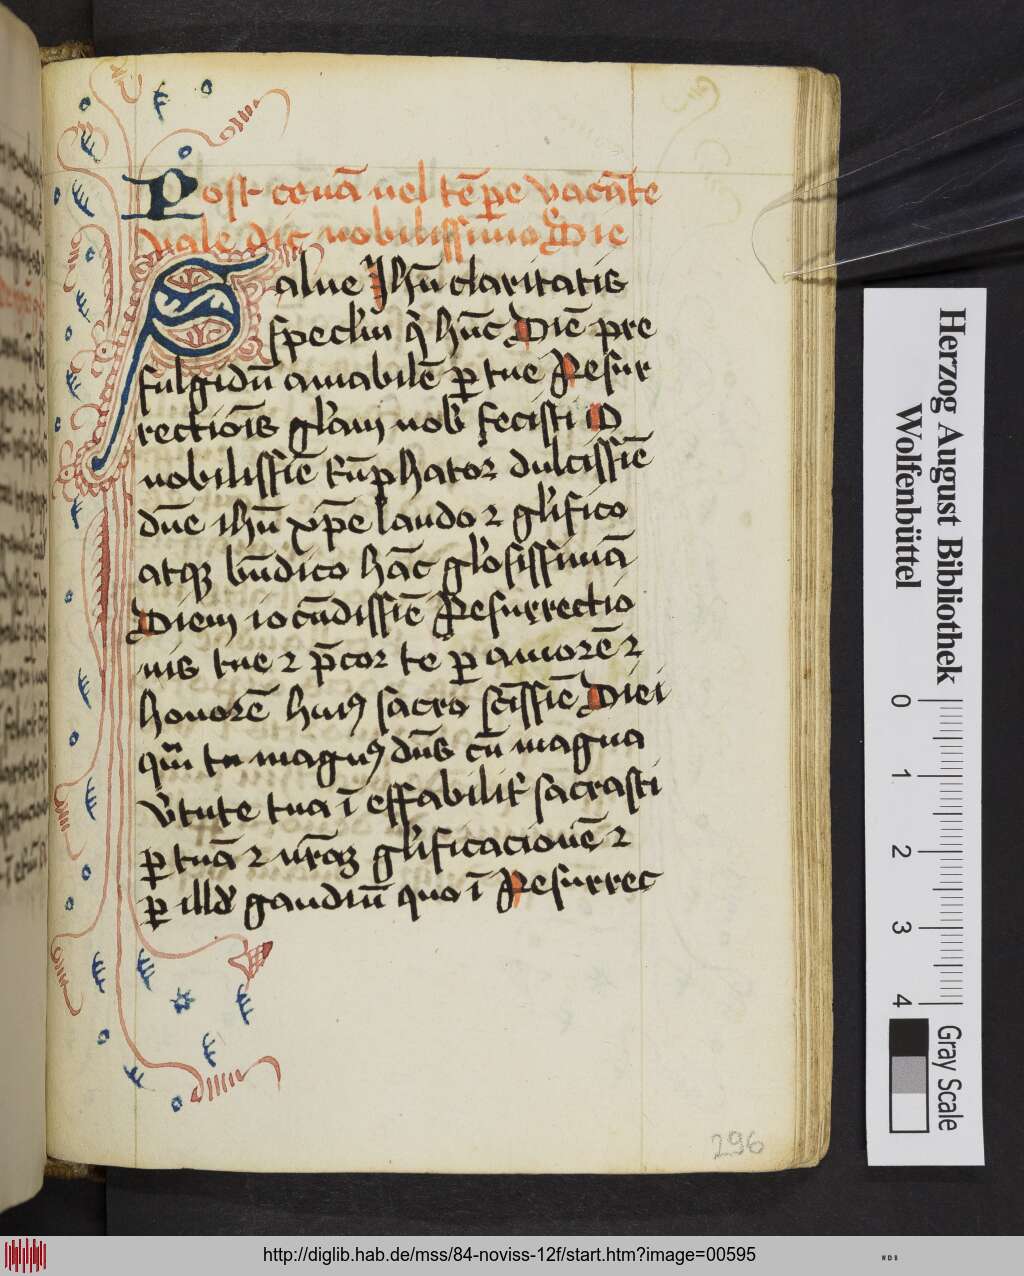 Post cenā uel tēpe vacāte
vale dic nobilissimo Die
Salue Jhū claritatis
specl'm q̇ hūc Diē pre
fulgidū amabilē ꝑ tue Resur
rectiōis gl'am nob' fecisti O
nobilissiē tūphator dulcissiē
dn̄e ihū xp̄e laudo ⁊ gl'ifico
atqꝫ bn̄dico hāc gl'osissimā
Diem iocūdissiē Resurrectio
nis tue ⁊ p̄cor te ꝑ amorē ⁊
honorē huiꝰ sacro sc̄issiē Diei
qm̄ tu magnꝰ dn̄s cū magna
v'tute tua ī effabilit' sacrasti
ꝑ tuā ⁊ nr̄oꝝ gl'ificacionē ⁊
ꝑ illd' gaudiū quo ī Resurrec
296
Herzog August Bibliothek
Wolfenbüttel
0 1 2 3 4
Gray Scale
http://diglib.hab.de/mss/84-noviss-12f/start.htm?image=00595